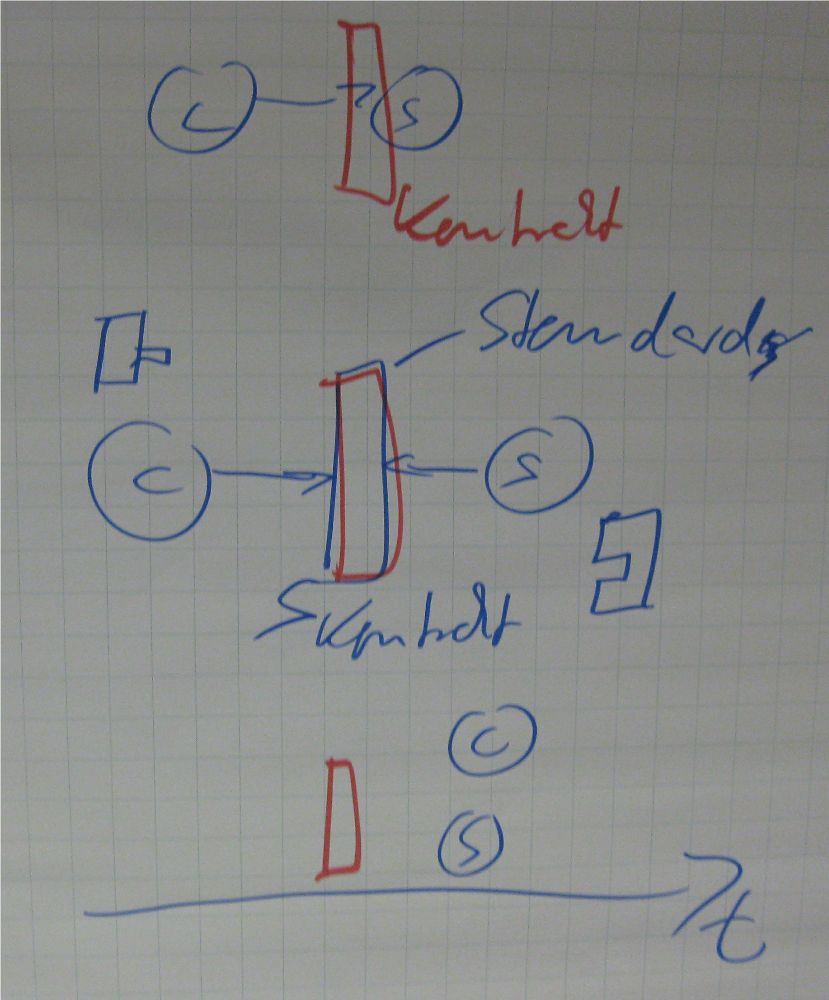 C S
Kontrakt
Standards
C S
Kontrakt
C
S
t